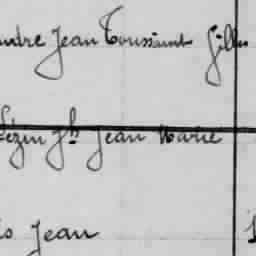 andre Jean Toussaint Gilles
Lézin Jh Jean Marie
is Jean